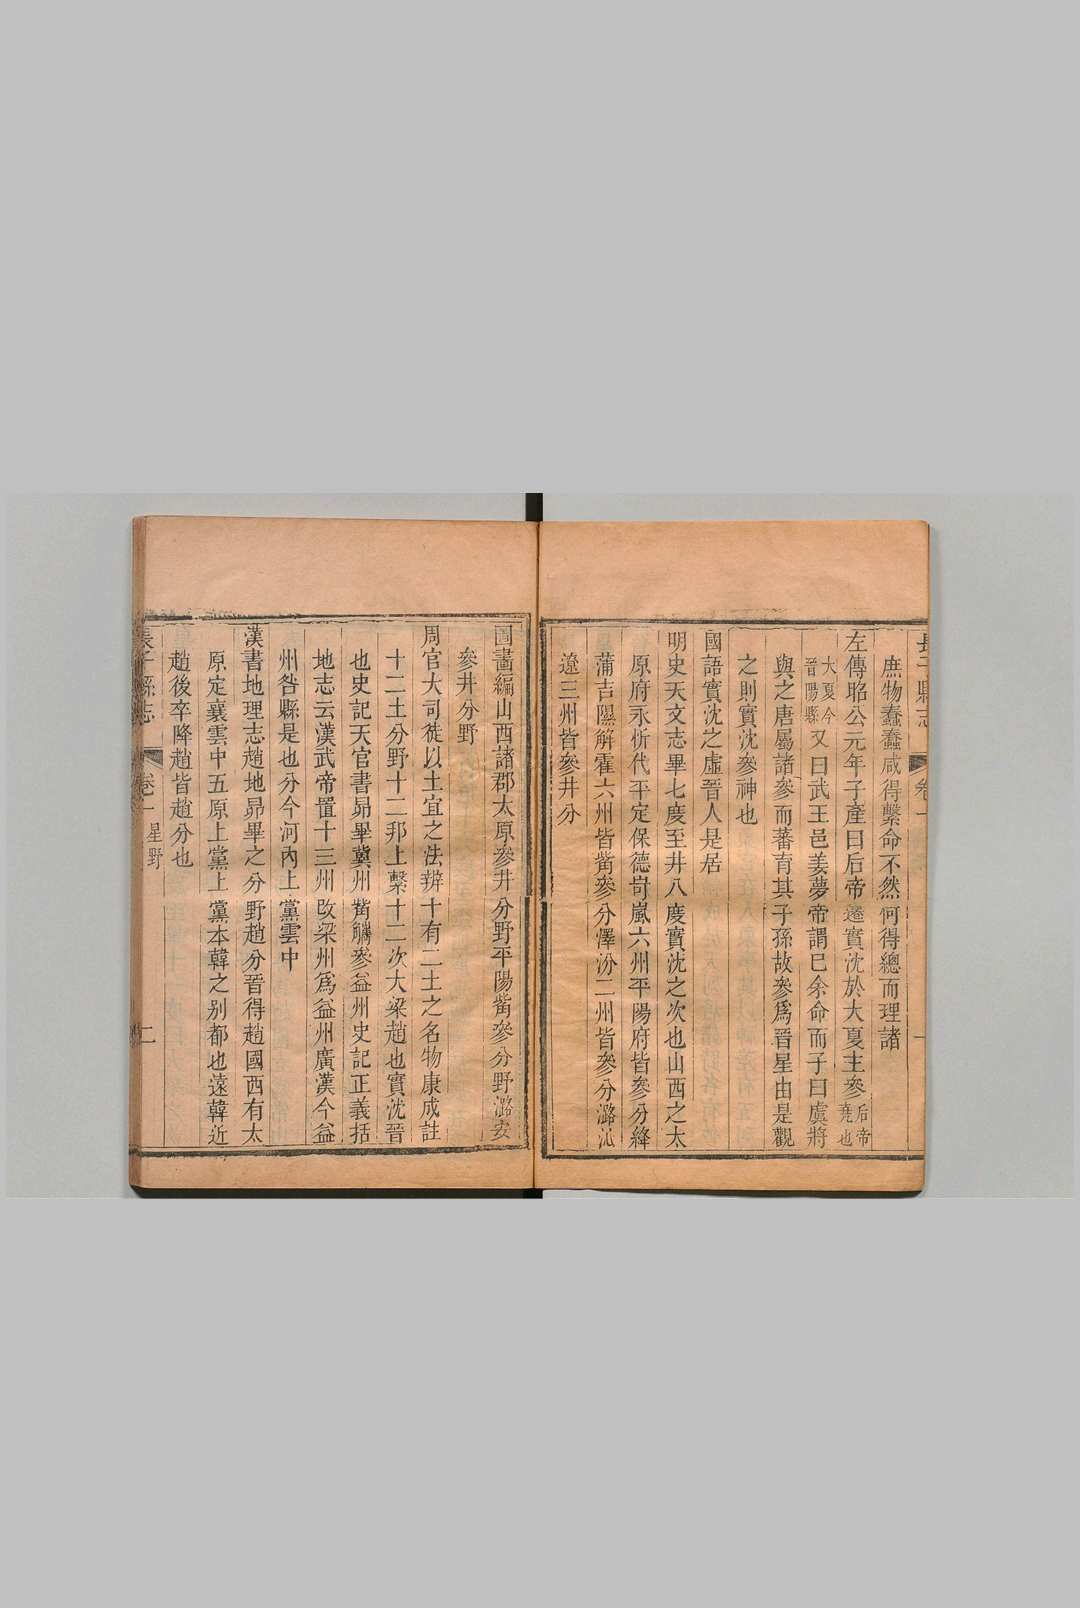 庶物蠢蠢咸得繫命不然何得總而理諸
左傳昭公元年子產曰后帝遷實沈於大夏主參后帝堯也
大夏今晉陽縣又曰武王邑姜夢帝謂已余命而子曰虞將
與之唐屬諸參而蕃育其子孫故參爲晉星由是觀
之則實沈參神也
國語實沈之虛晉人是居
明史天文志畢七度至井八度實沈之次也山西之太
原府永忻代平定保德岢嵐六州平陽府皆參分絳
蒲吉隰解霍六州皆觜參分澤汾二州皆參分潞沁
遼三州皆參井分
長子縣志
卷一
一
圖書編山西諸郡太原參井分野平陽觜參分野潞安
參井分野
周官大司徒以土宜之法辨十有二土之名物康成註
十二土分野十二邦上繫十二次大梁趙也實沈晉
也史記天官書昴畢冀州觜觿參益州史記正義括
地志云漢武帝置十三州改梁州爲益州廣漢今益
州咎縣是也分今河內上黨雲中
漢書地理志趙地昴畢之分野趙分晉得趙國西有太
原定襄雲中五原上黨上黨本韓之别都也遠韓近
趙後卒降趙皆趙分也
長子縣志
卷一
星野
二